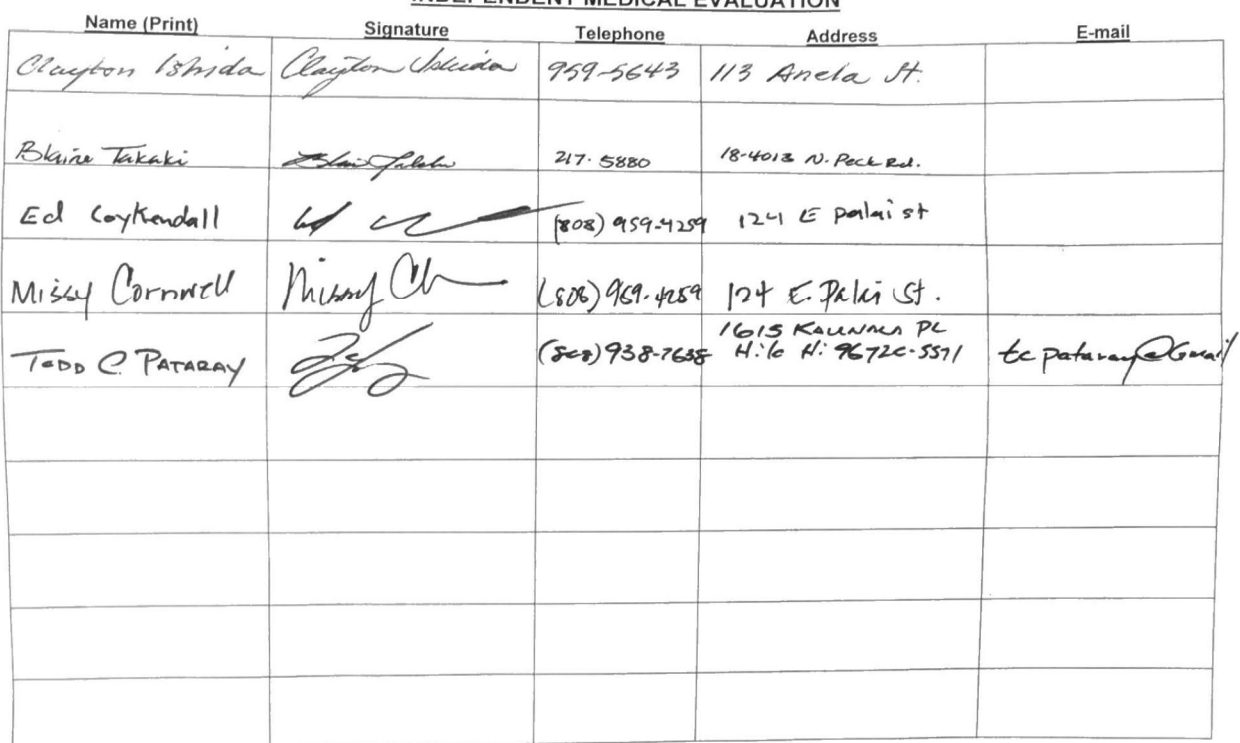 INDEPENDENT MEDICAL EVALUATION
Name (Print) Signature Telephone Address E-mail
Clayton Ishida Clayton Ishida 959-5643 113 Anela St.
Blaine Takaki 217-5880 18-4013 N. Peck Rd.
Ed Coykendall (808) 959-4259 124 E Palai st
Missy Cornwell Missy (808) 959-4259 124 E. Palai St.
1615 PL
TODD C. PATARAY (808) 938-7638 Hilo Hi 96720-5571 tcpataray@Gmail